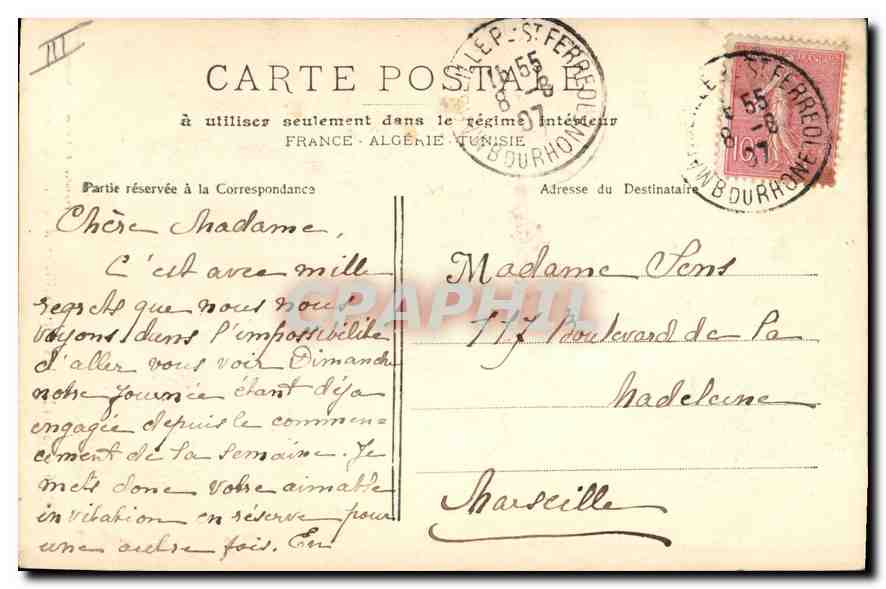 III
CARTE POSTALE
à utiliser seulement dans le régime intérieur
FRANCE - ALGÉRIE - TUNISIE
Partie réservée à la Correspondance
Chère Madame,
C'est avec mille
regrets que nous nous
voyons dans l'impossibilité
d'aller vous voir Dimanche
notre journée étant déja
engagée depuis le commen-
cement de la semaine. Je
mets donc votre aimable
invitation en réserve pour
une autre fois. En
Adresse du Destinataire
Madame Sens
177 Boulevard de la
Madeleine
Marseille
MARSEILLE PL. ST FERREOL
55
8 -8
07
BOUCHES DU RHONE
MARSEILLE PL. ST FERREOL
55
8 -8
07
BOUCHES DU RHONE
10
CPAPHIL